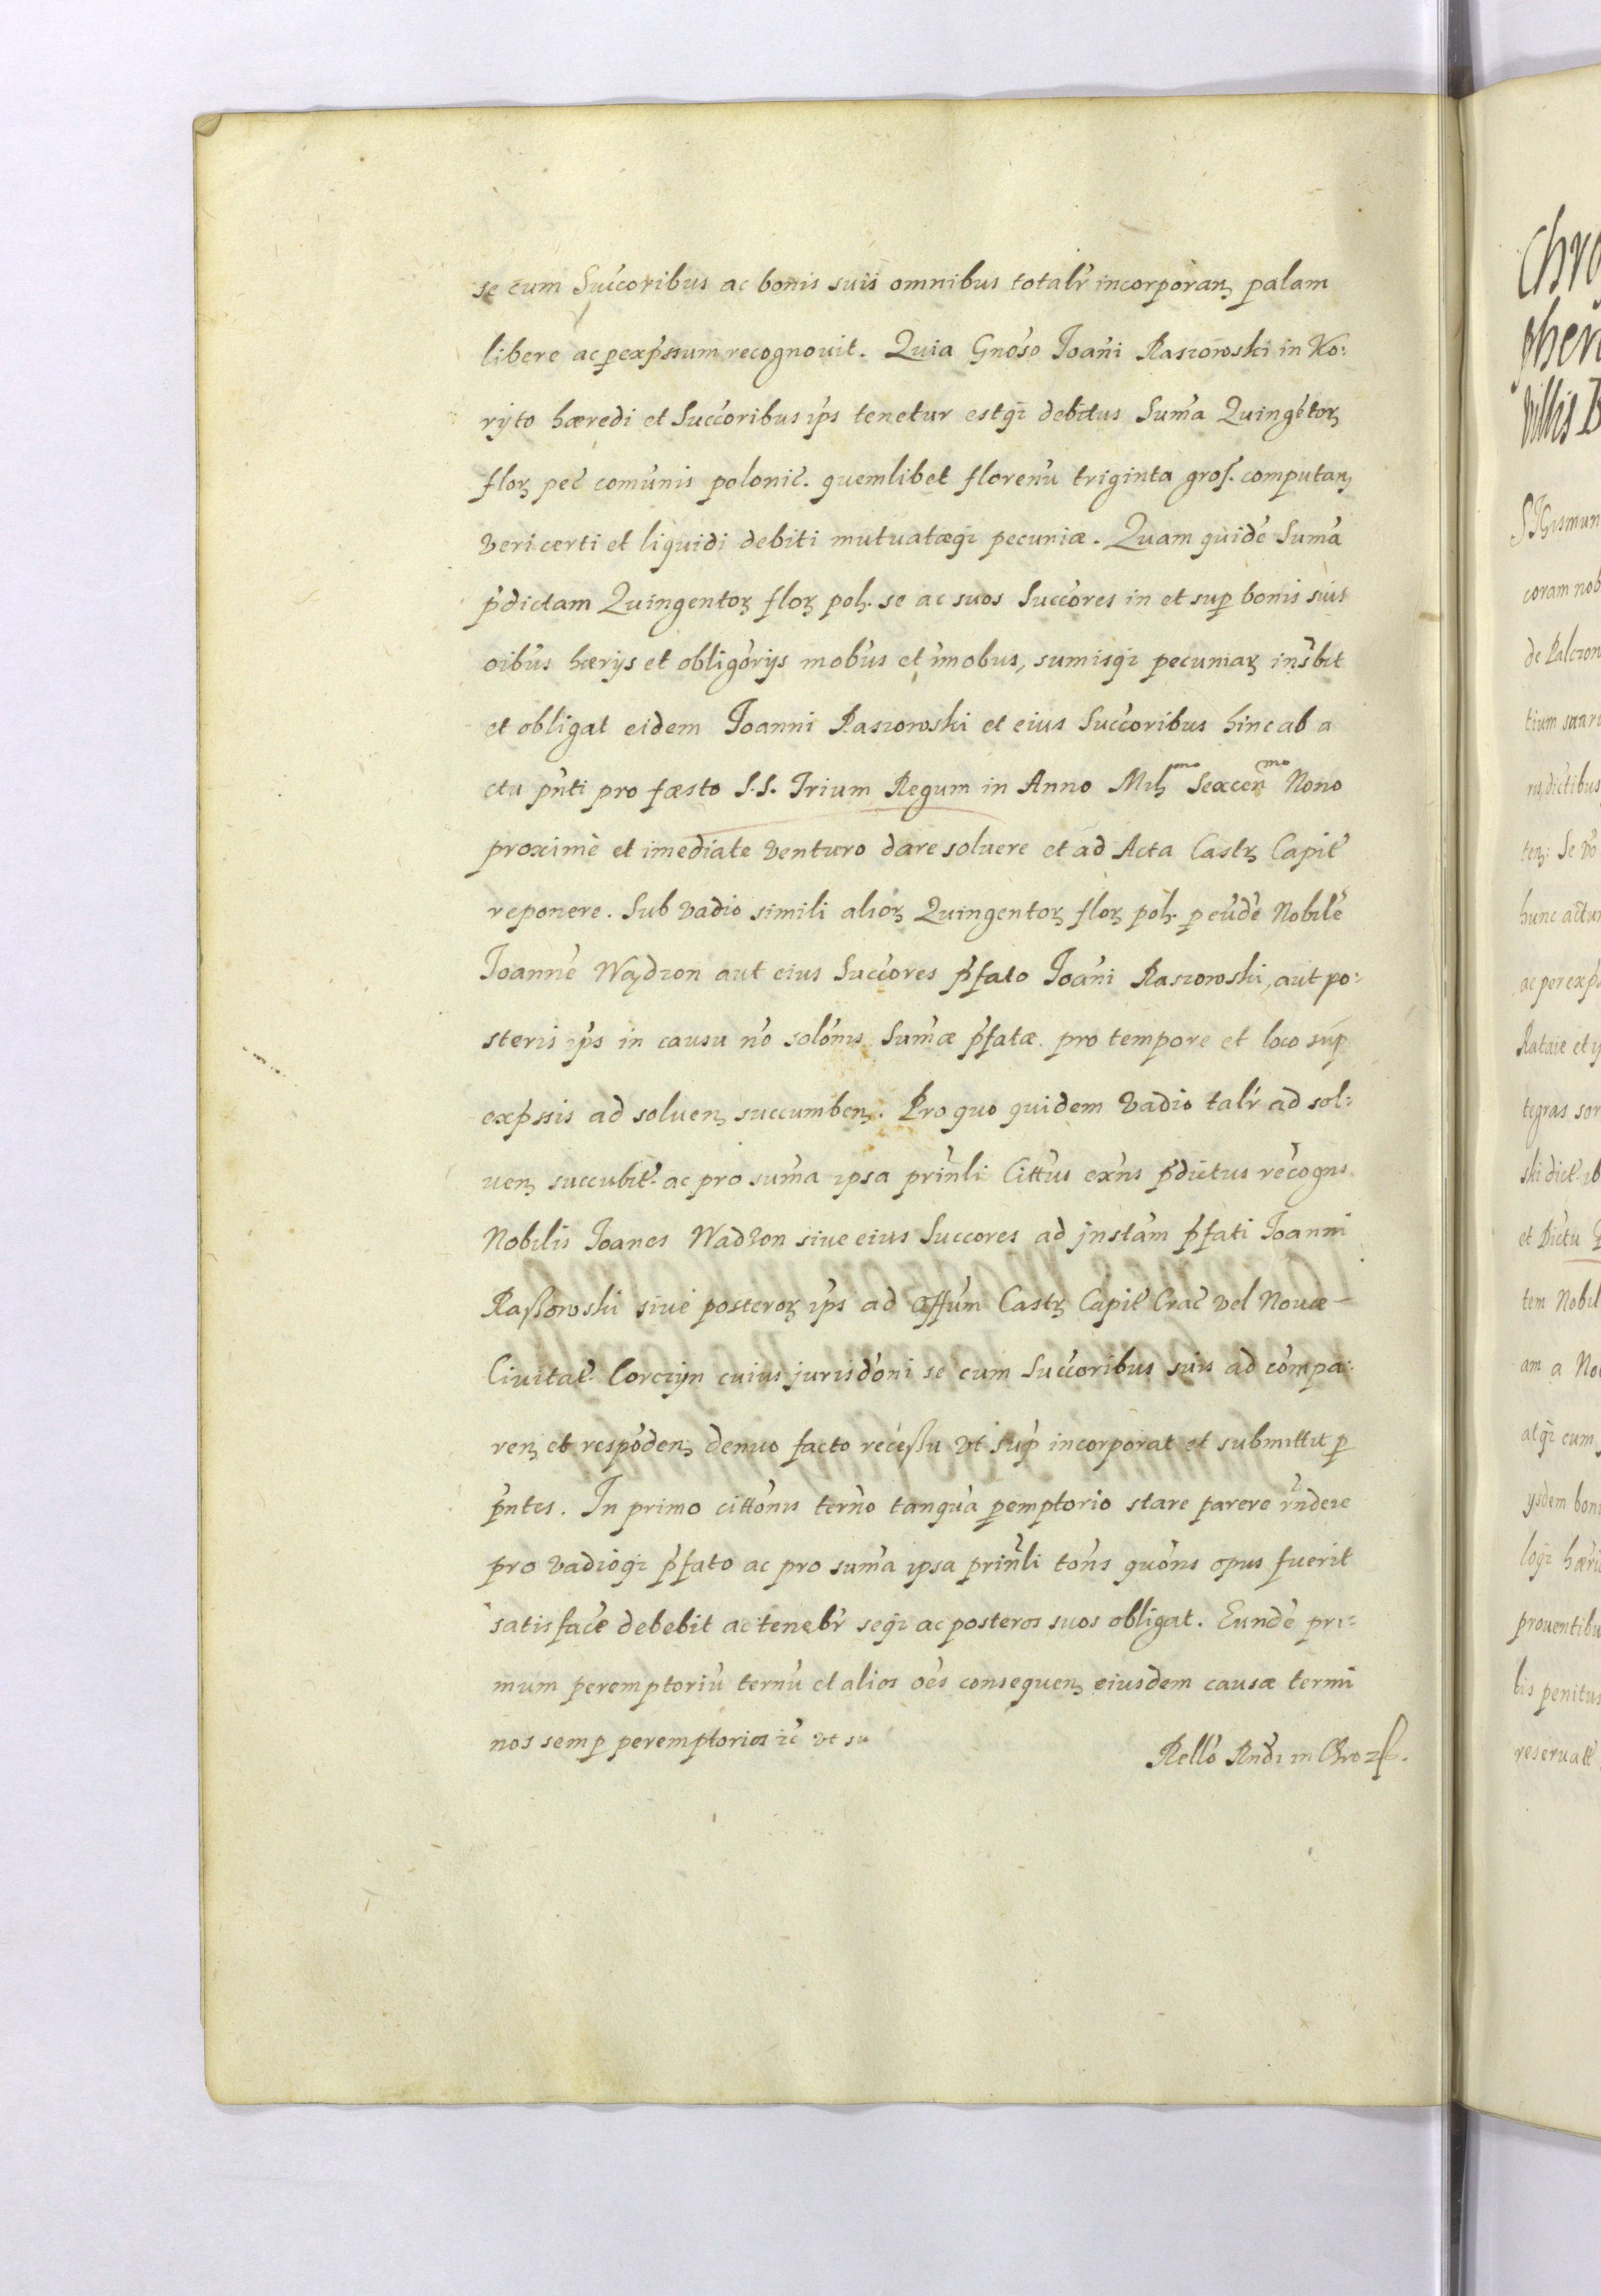 se cum Succoribus ac bonis suis omnibus totalr incorporanꝫ palam
libere ac pexpssum recognouit. Quia Gnoso Joani Raszowski in Ko:
ryto hæredi et Succoribus ips tenetur estqꝫ debitus Suma Quingetorꝫ
florꝫ pec comunis polonic. quemlibet florenu triginta gros. computanꝫ
veri certi et liquidi debiti mutuatæqꝫ pecuniæ. Quam quide Suma
pdictam Quingentorꝫ florꝫ polꝫ. se ac suos Succores in et sup bonis suis
oibus hærijs et obligorijs mobus et imobus, sumisqꝫ pecuniarꝫ insbit
et obligat eidem Joanni Raszowski et eius Succoribus hinc ab a
ctu pnti pro fæsto S.S. Trium Regum in Anno Milꝫmo Sexcenmo Nono
proximè et imediate venturo dare soluere et ad Acta Castrꝫ Capit
reponere. Sub vadio simili aliorꝫ Quingentorꝫ florꝫ polꝫ. p eude Nobile
Joanne Wądzon aut eius Succores pfato Joani Raszowski, aut po:
steris ips in causu no solonis Sumæ pfatæ pro tempore et loco sup
expssis ad soluenꝫ succumbenꝫ. Pro quo quidem vadio talr ad sol:
uenꝫ succubit. ac pro suma ipsa prinli Cittus exns pdictus recogns
Nobilis Joanes Wadzon siue eius Succores ad jnstam pfati Joanni
Raszowski siue posterorꝫ ips ad Offum Castrꝫ Capit Crac vel Nouæ –
Ciuitat. Corczyn cuius jurisdoni se cum Succoribus suis ad compa:
renꝫ et respodenꝫ denuo facto recessu vt sup incorporat et submittit p
pntes. In primo cittonis terno tanqua pemptorio stare parere rndere
pro vadioqꝫ pfato ac pro suma ipsa prinli tons quons opus fuerit
satisface debebit ac tenebr seqꝫ ac posteros suos obligat. Eunde pri:
mum peremptoriu ternu et alios oes consequenꝫ eiusdem causæ termi
nos semp peremptorios zc vt su
Rello